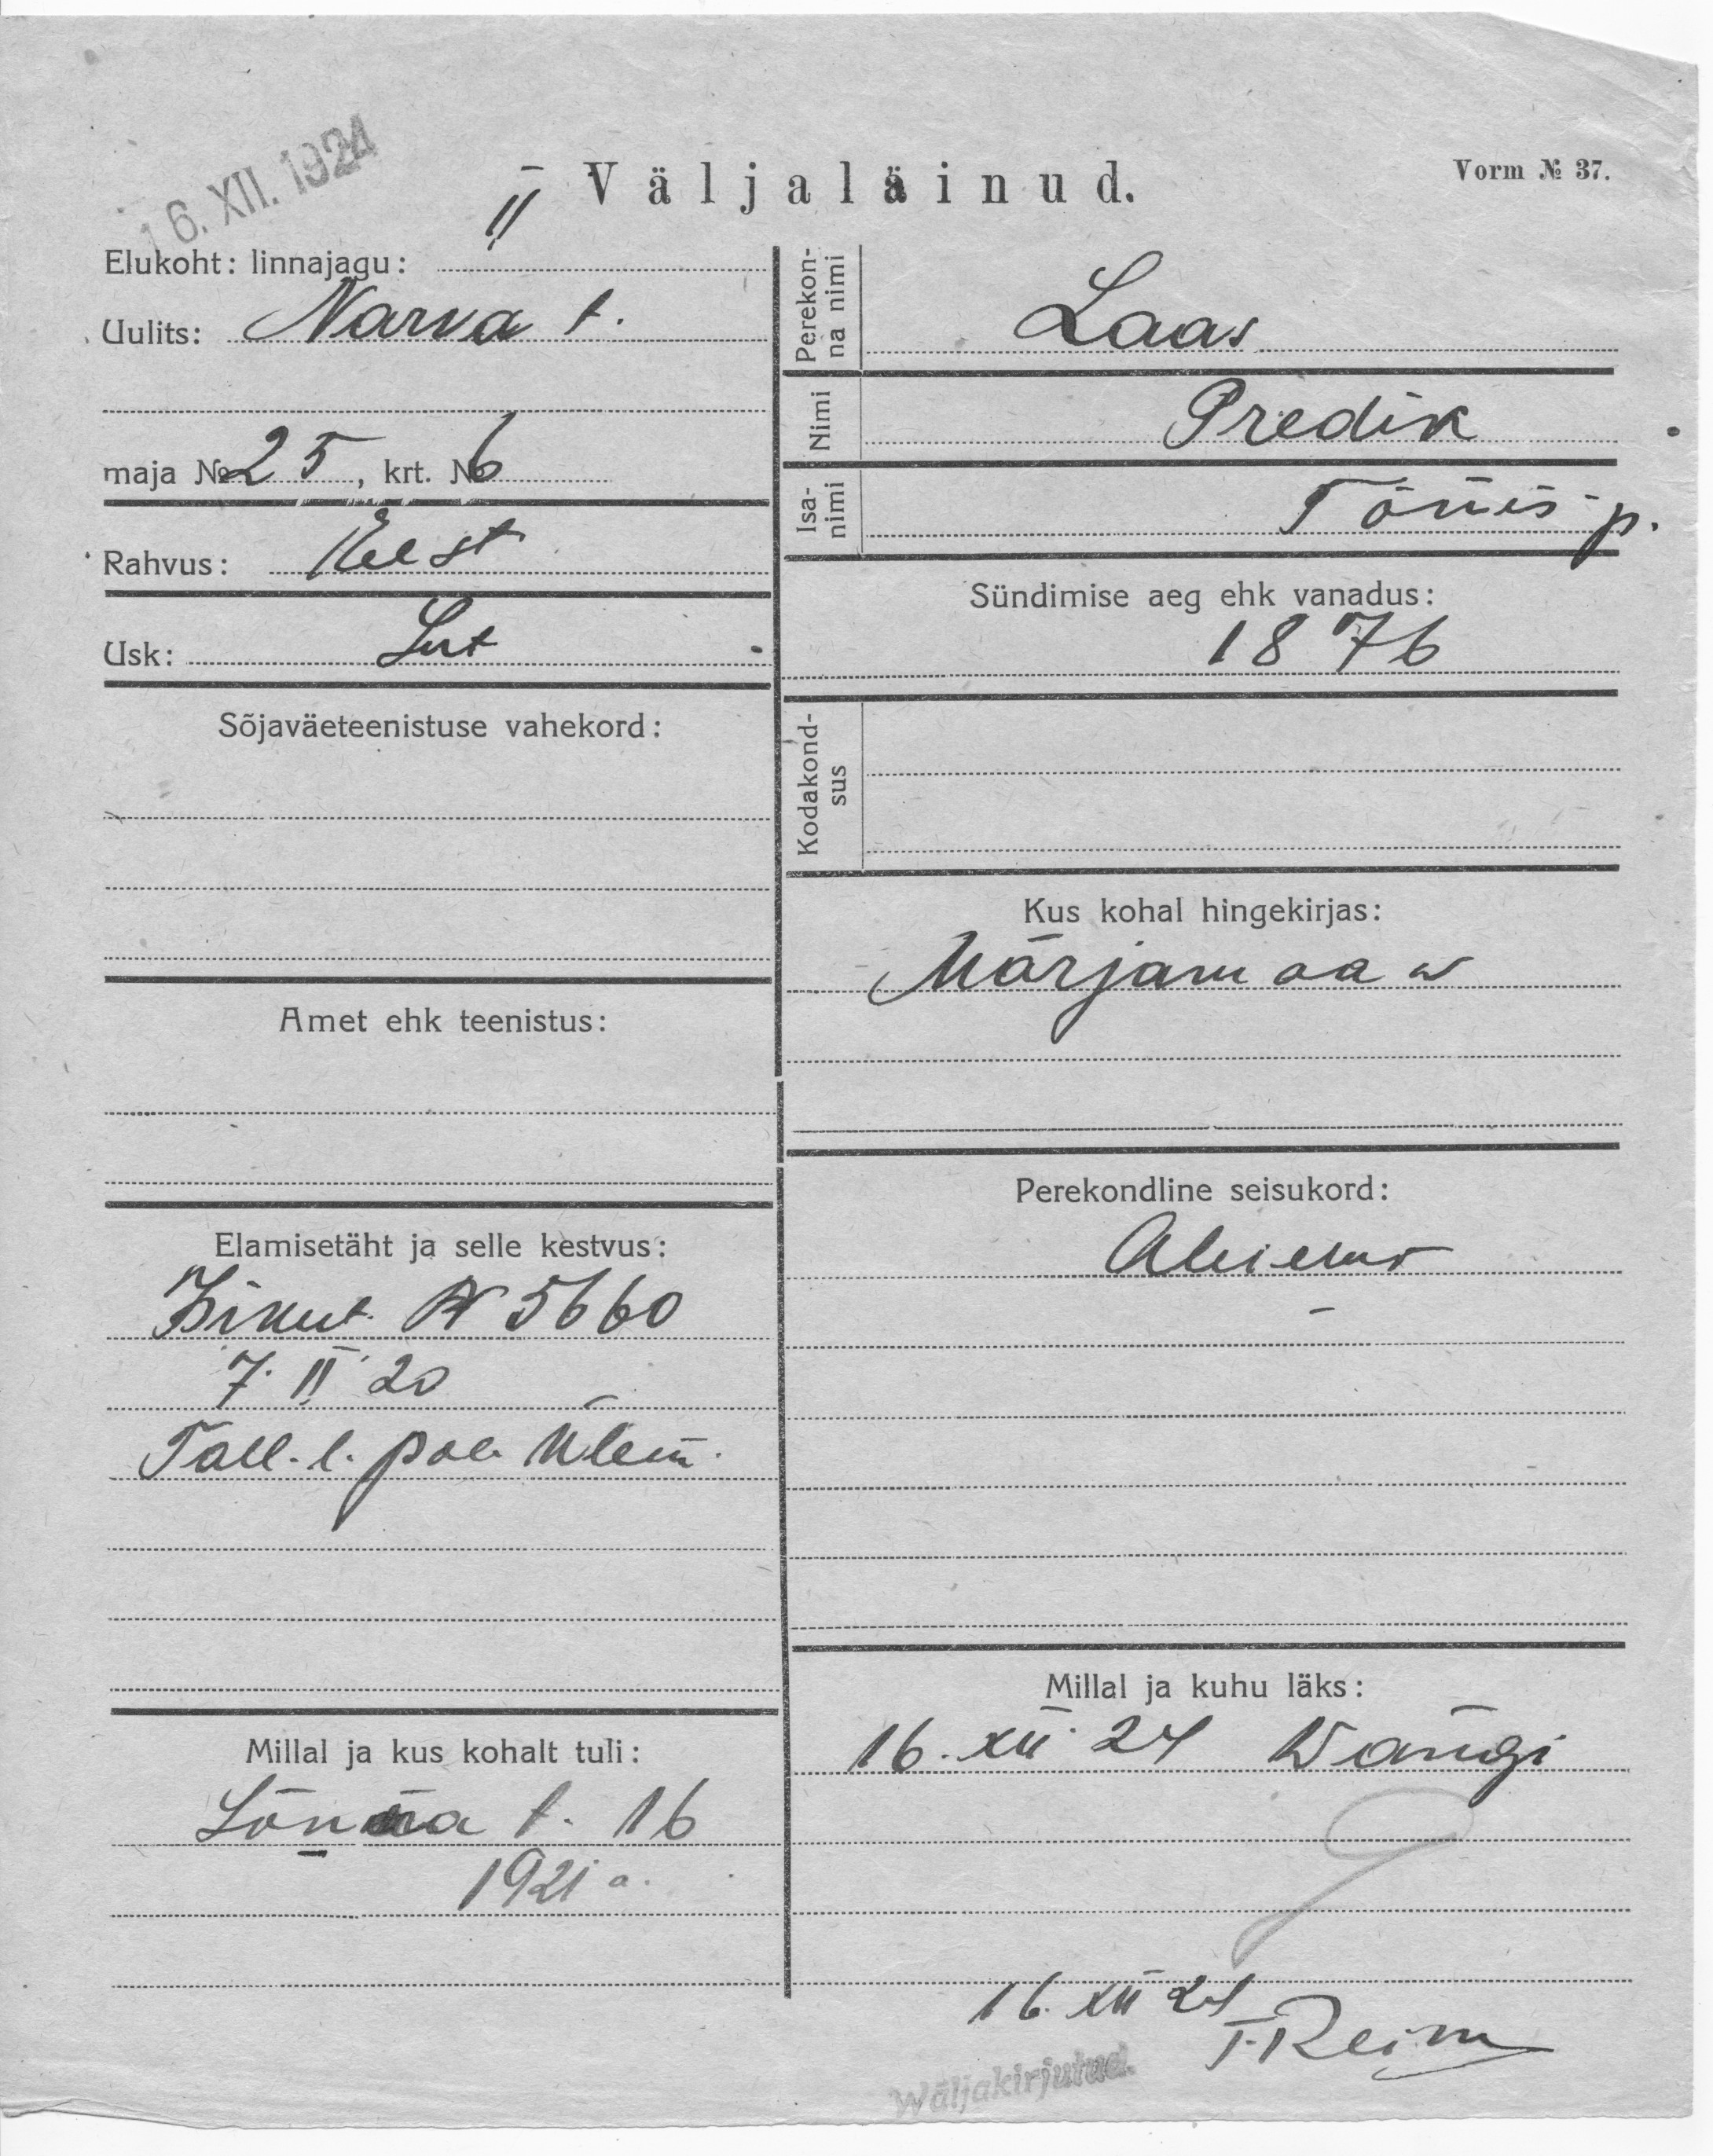 16. XII. 1924
Väljaläinud.
Vorm № 37.
Elukoht: linnajagu: II
Uulits: Narva t.
maja № 25, krt. № 6
Rahvus: Eest
Usk: Lut
Sõjaväeteenistuse vahekord:
Amet ehk teenistus:
Elamisetäht ja selle kestvus:
Isikut. № 5660
7. II 20
Tall. l. pol. Ülem.
Millal ja kus kohalt tuli:
t. 16
1921 a.
Perekonna nimi Laas
Nimi Predik
Isanimi Tõnis p.
Sündimise aeg ehk vanadus:
1876
Kodakondsus
Kus kohal hingekirjas:
Märjamaa w
Perekondline seisukord:
Abielus
Millal ja kuhu läks:
16. XII 24 Wangi
16. XII 24
Reim
Wäljakirjutud.